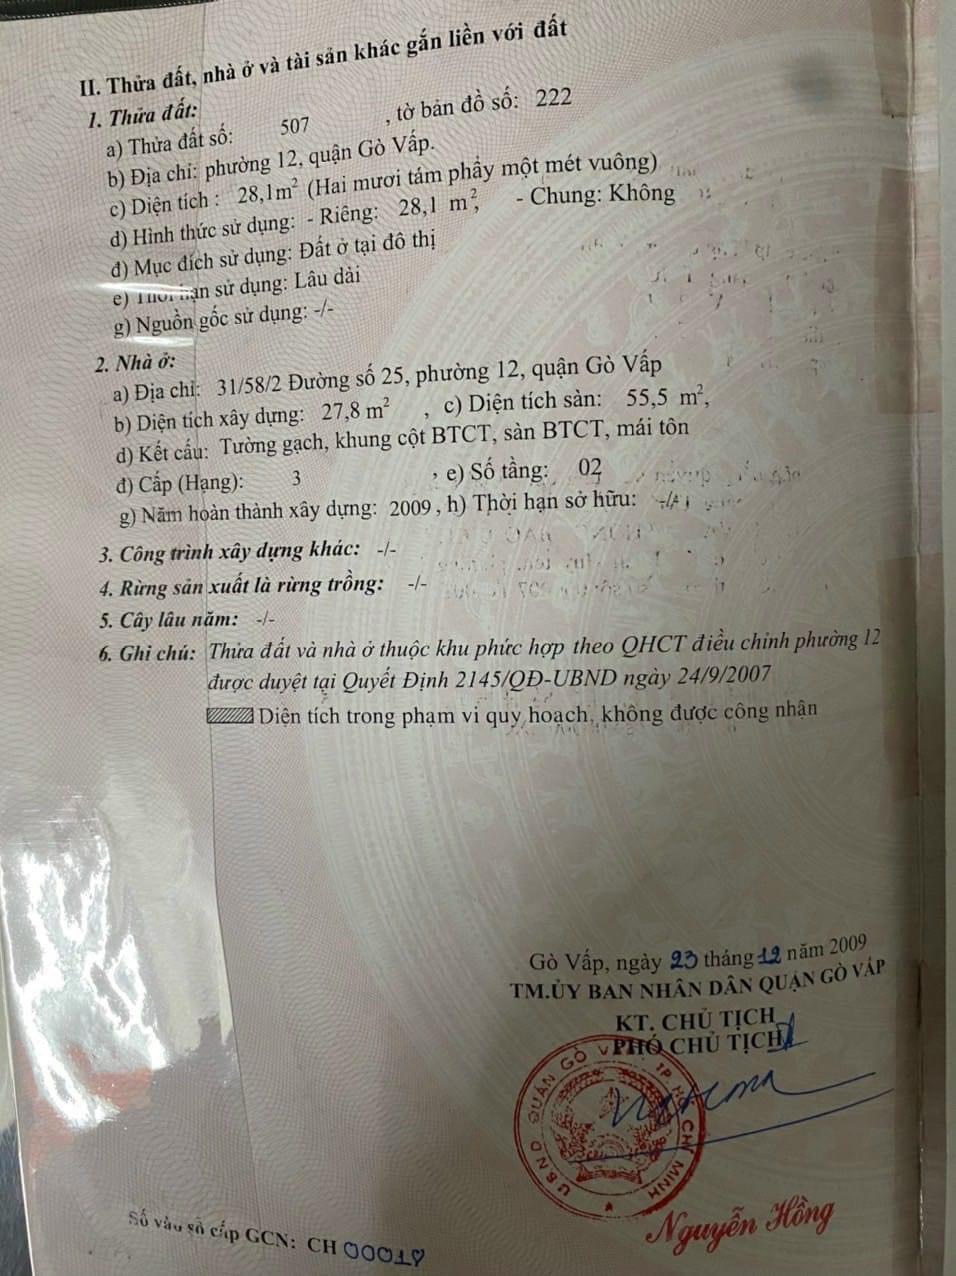 II. Thửa đất, nhà ở và tài sản khác gắn liền với đất
1. Thửa đất:
a) Thửa đất số: 507 , tờ bản đồ số: 222
b) Địa chỉ: phường 12, quận Gò Vấp.
c) Diện tích : 28,1m² (Hai mươi tám phẩy một mét vuông)
d) Hình thức sử dụng: - Riêng: 28,1 m², - Chung: Không
đ) Mục đích sử dụng: Đất ở tại đô thị
e) Thời hạn sử dụng: Lâu dài
g) Nguồn gốc sử dụng: -/-
2. Nhà ở:
a) Địa chỉ: 31/58/2 Đường số 25, phường 12, quận Gò Vấp
b) Diện tích xây dựng: 27,8 m² , c) Diện tích sàn: 55,5 m²,
d) Kết cấu: Tường gạch, khung cột BTCT, sàn BTCT, mái tôn
đ) Cấp (Hạng): 3 , e) Số tầng: 02
g) Năm hoàn thành xây dựng: 2009 , h) Thời hạn sở hữu: -/-
3. Công trình xây dựng khác: -/-
4. Rừng sản xuất là rừng trồng: -/-
5. Cây lâu năm: -/-
6. Ghi chú: Thửa đất và nhà ở thuộc khu phức hợp theo QHCT điều chỉnh phường 12
được duyệt tại Quyết Định 2145/QĐ-UBND ngày 24/9/2007
Diện tích trong phạm vi quy hoạch, không được công nhận
Gò Vấp, ngày 23 tháng 12 năm 2009
TM.ỦY BAN NHÂN DÂN QUẬN GÒ VẤP
KT. CHỦ TỊCH
PHÓ CHỦ TỊCH
UBND QUẬN GÒ VẤP TP HỒ CHÍ MINH
Nguyễn Hồng
Số vào sổ cấp GCN: CH